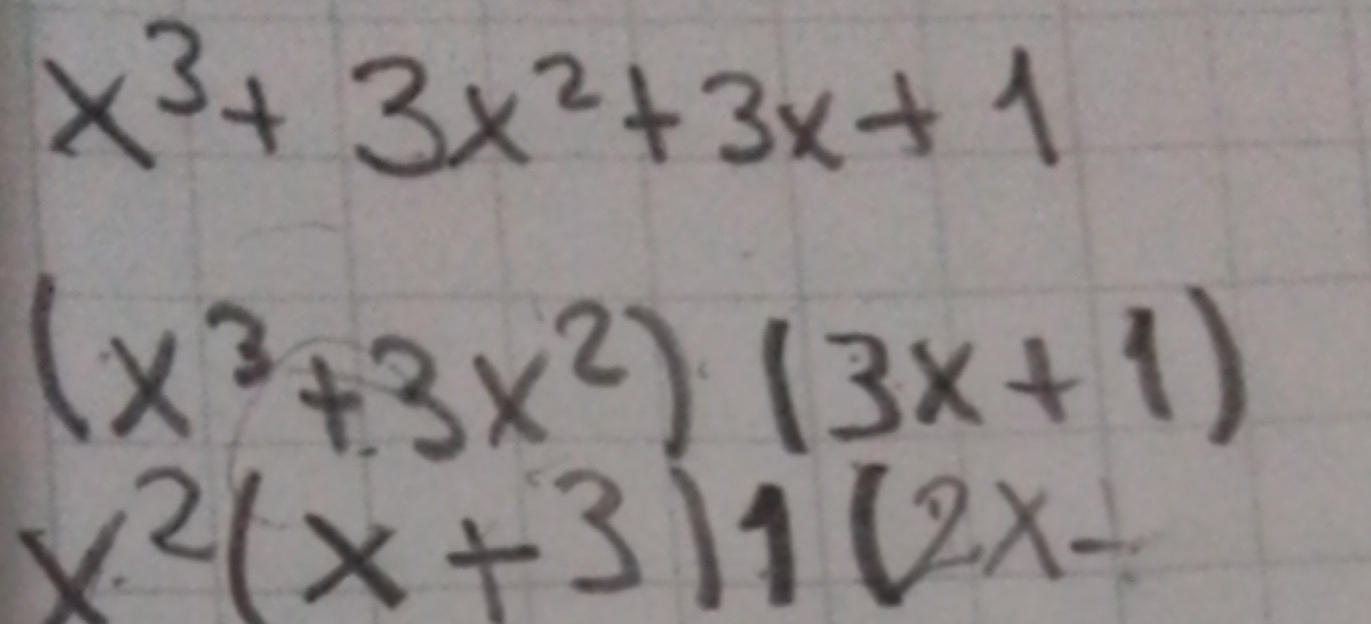 x³+ 3x²+3x+1
(x³+3x²) (3x+1)
x²(x+3)1(2x-